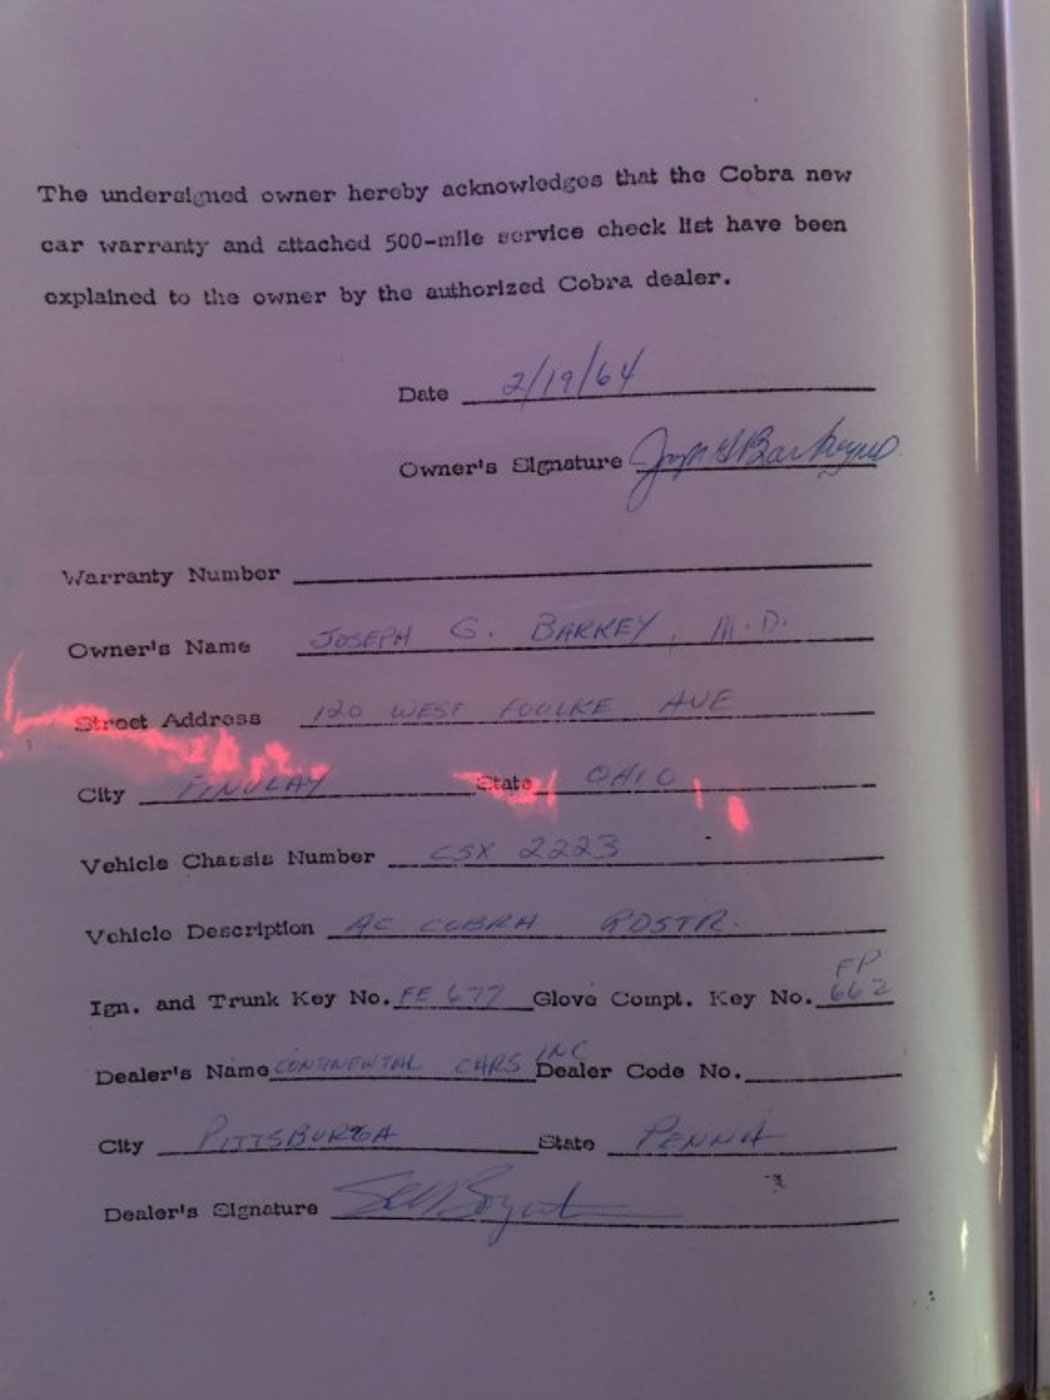 The undersigned owner hereby acknowledges that the Cobra new
car warranty and attached 500-mile service check list have been
explained to the owner by the authorized Cobra dealer.
Date 2/19/64
Owner's Signature
Warranty Number
Owner's Name JOSEPH G. BARKEY, M.D.
Street Address 120 WEST FOULKE AVE
City FINDLAY State OHIO
Vehicle Chassis Number CSX 2223
Vehicle Description AC COBRA RDSTR.
Ign. and Trunk Key No. FE 677 Glove Compt. Key No. FP 662
Dealer's Name CONTINENTAL CARS INC Dealer Code No.
City PITTSBURGH State PENNA
Dealer's Signature